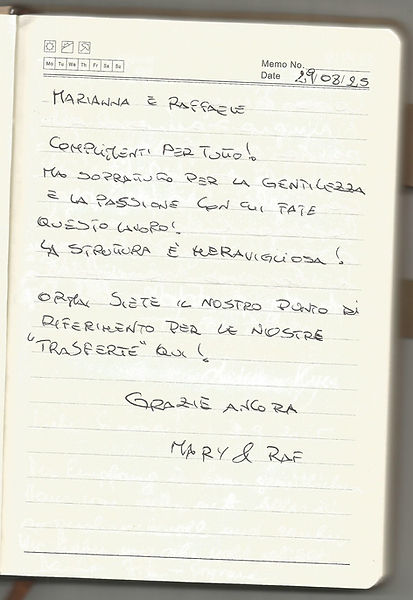 Mo Tu We Th Fr Sa Su
Memo No.
Date 29/08/25
MARIANNA E RAFFAELE
COMPLIMENTI PER TUTTO!
MA SOPRATUTTO PER LA GENTILEZZA
E LA PASSIONE CON CUI FATE
QUESTO LAVORO!
LA STRUTTURA È MERAVIGLIOSA!
ORMAI SIETE IL NOSTRO PUNTO DI
RIFERIMENTO PER LE NOSTRE
"TRASFERTE" QUI!
GRAZIE ANCORA
MARY & RAF